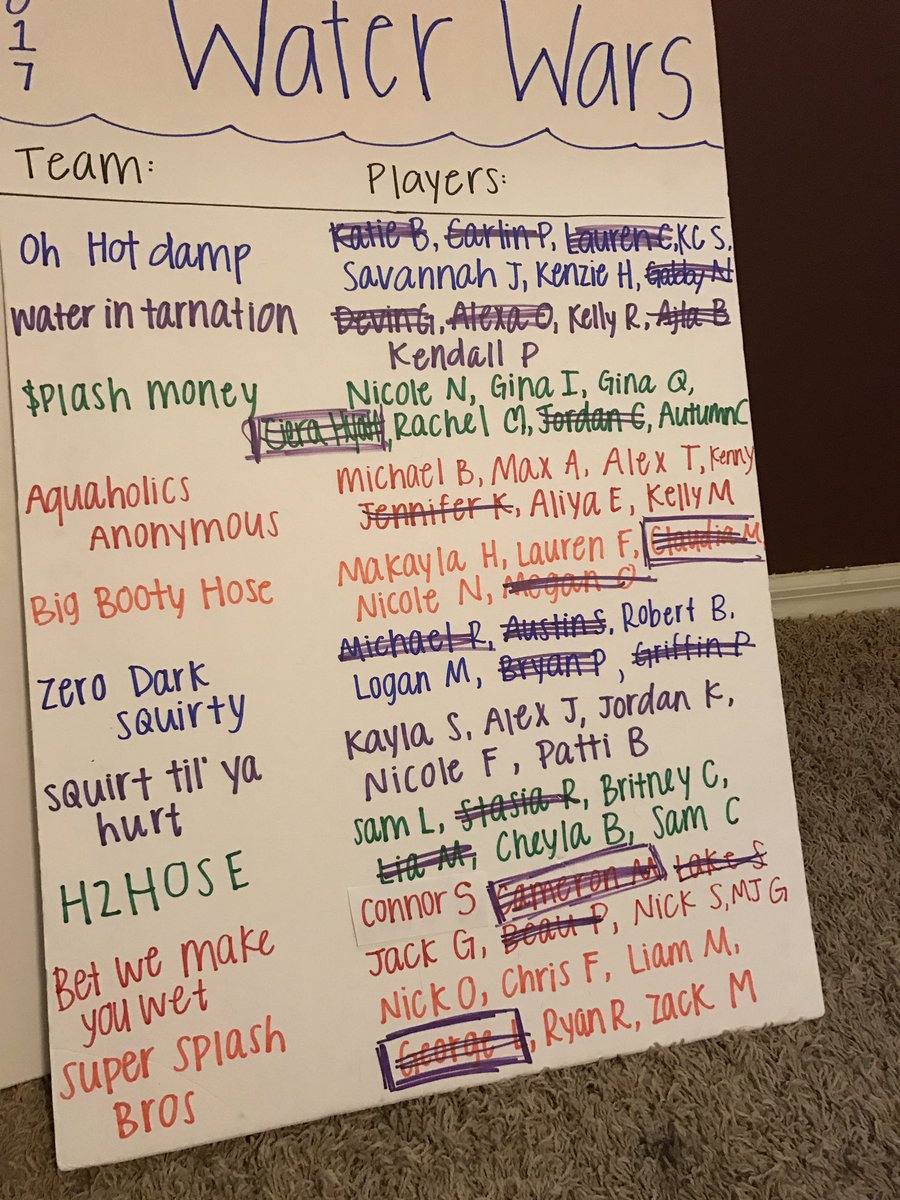 0
1
7
Water Wars
Team: Players:
Oh Hot damp Katie B, Carlin P, Lauren C, KC S,
Savannah J, Kenzie H, Gabby N
water in tarnation Devin G, Alexa O, Kelly R, Ajla B
Kendall P
$plash money Nicole N, Gina I, Gina Q,
Ciera Hyatt, Rachel M, Jordan C, Autumn C
Aquaholics Michael B, Max A, Alex T, Kenny
Anonymous Jennifer K, Aliya E, Kelly M
Big Booty Hose Makayla H, Lauren F, Claudia M
Nicole N, Megan O
Zero Dark Michael R, Austin S, Robert B.
squirty Logan M, Bryan P, Griffin P
squirt til' ya Kayla S, Alex J, Jordan K,
hurt Nicole F, Patti B
H2HOSE Sam L, Stasia R, Britney C,
Lia M, Cheyla B, Sam C
Bet we make Connor S Cameron M Lake S
you wet Jack G, Beau P, Nick S, MJ G
super splash Nick O, Chris F, Liam M,
Bros George L, Ryan R, Zack M